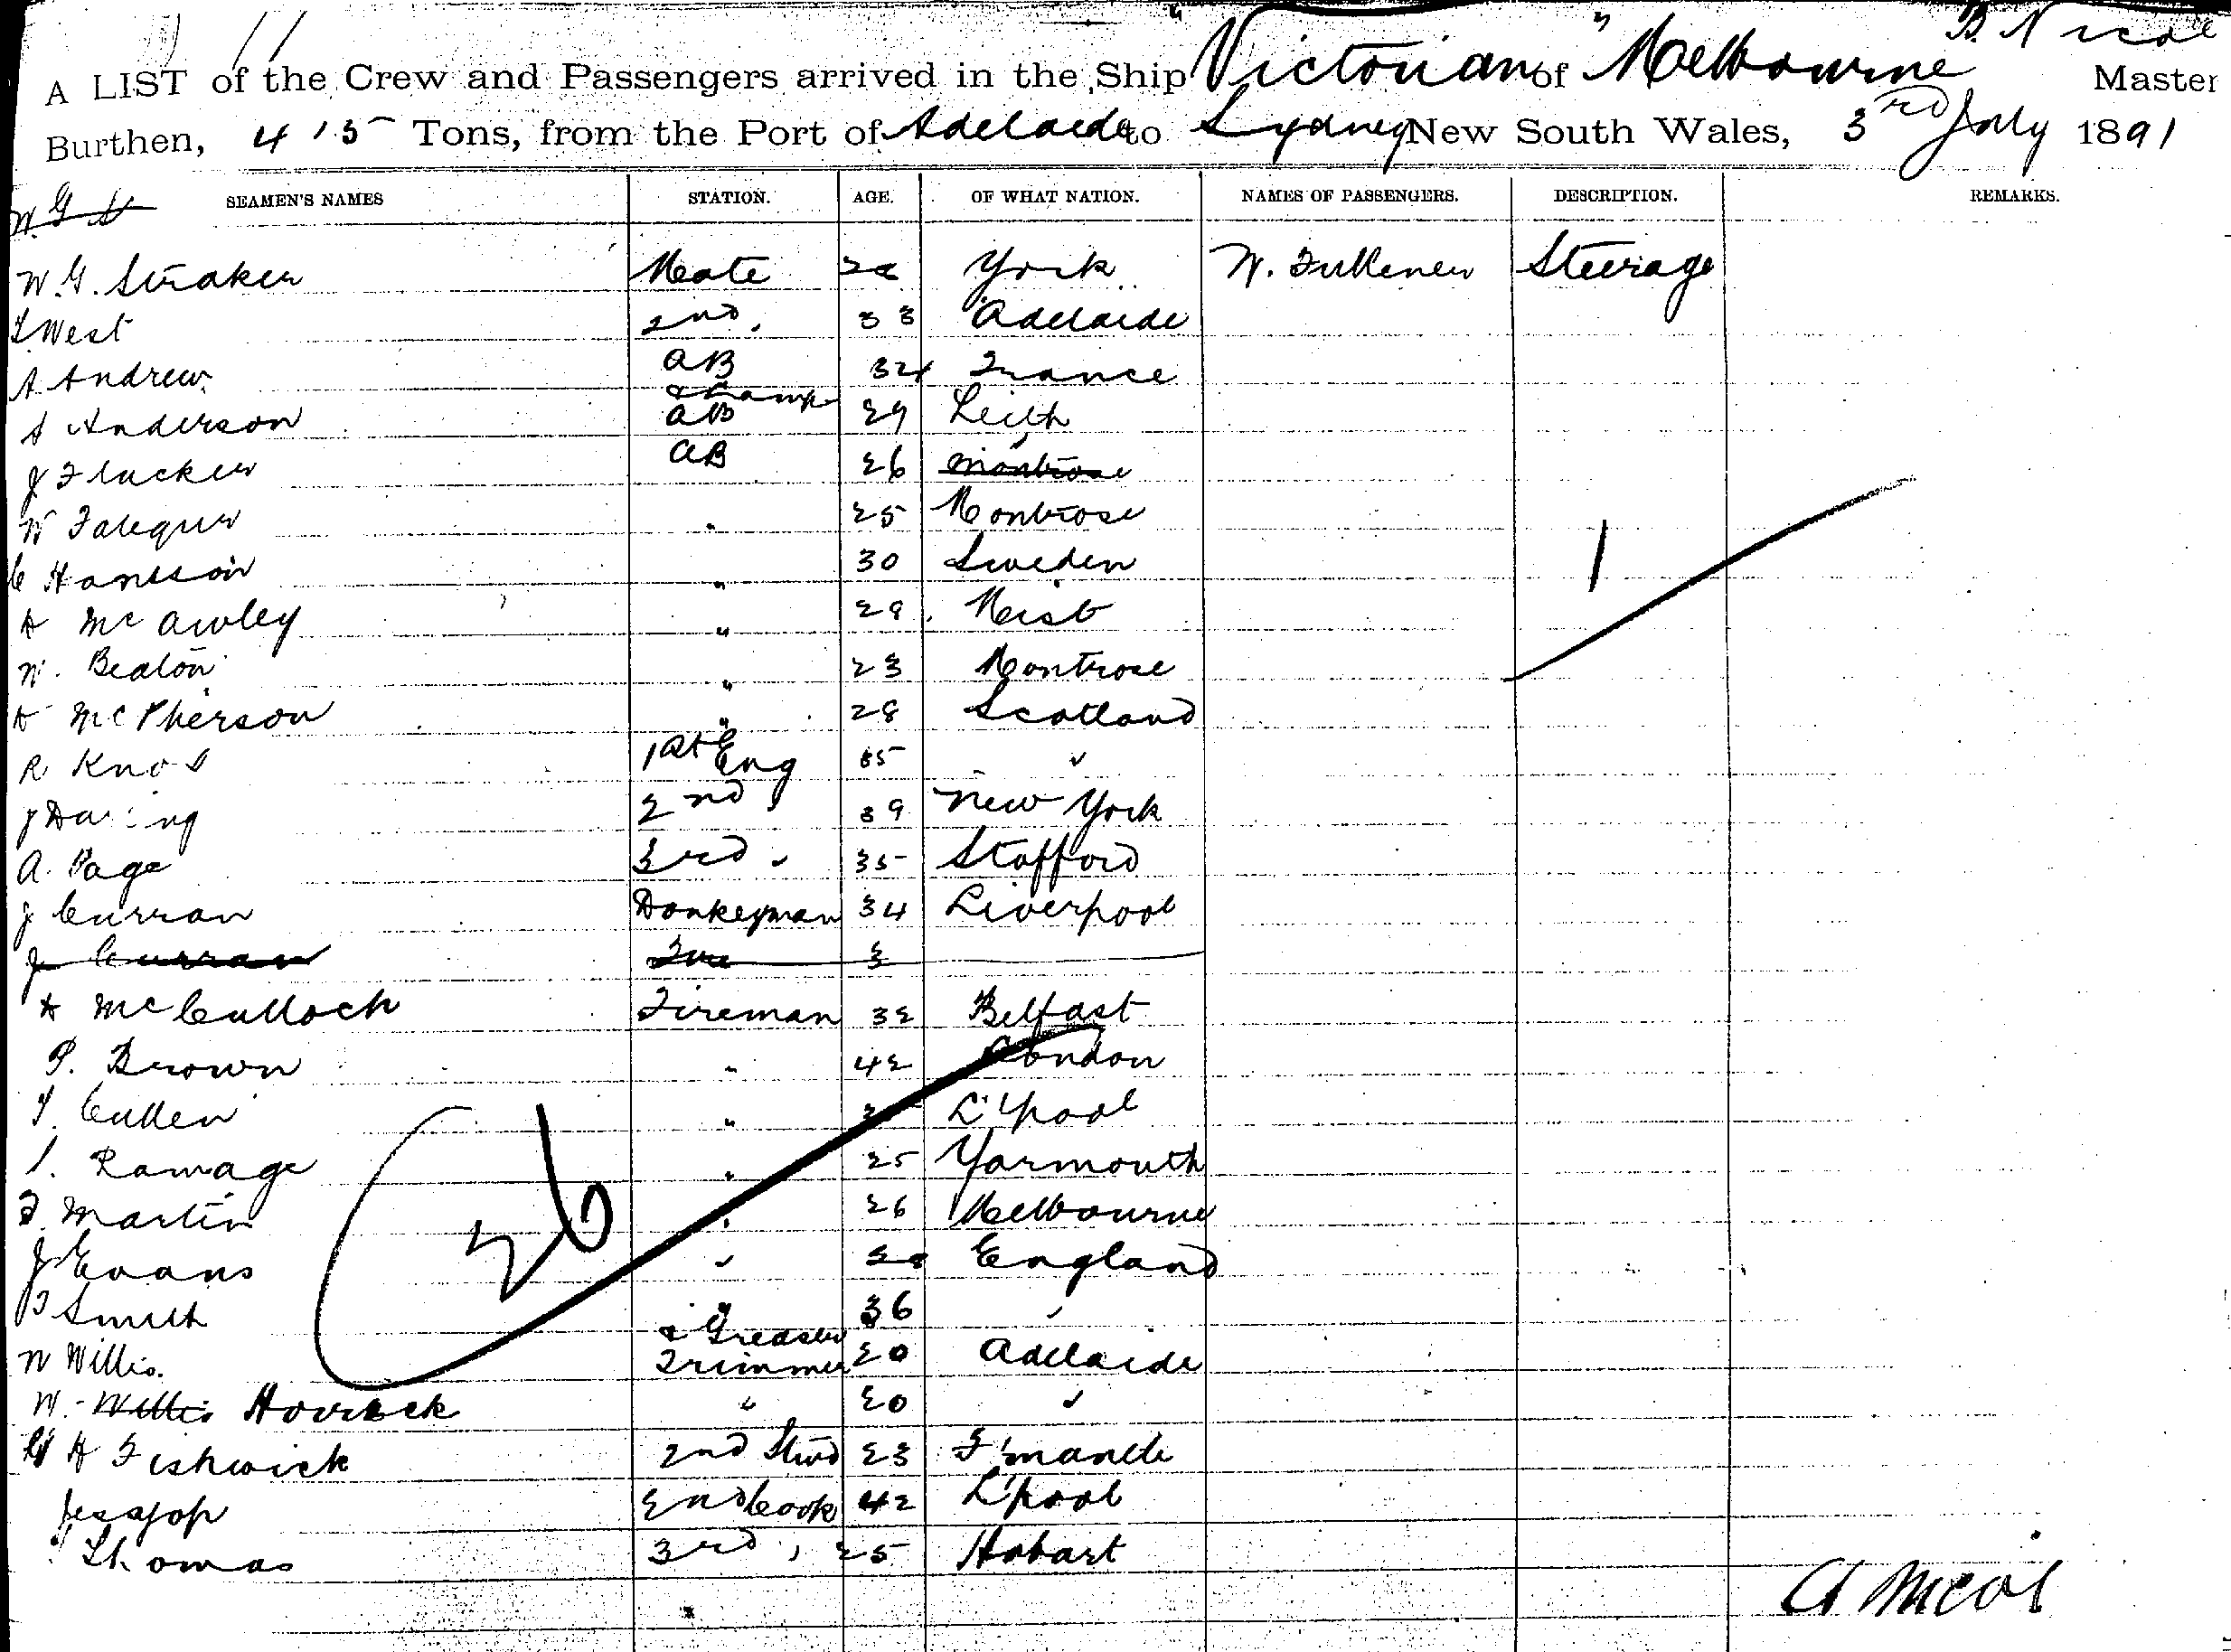 B. Nicol
A LIST of the Crew and Passengers arrived in the Ship "Victorian" of Melbourne Master
Burthen, 415 Tons, from the Port of Adelaide to Sydney New South Wales, 3rd July 1891
SEAMEN'S NAMES STATION. AGE. OF WHAT NATION. NAMES OF PASSENGERS. DESCRIPTION. REMARKS.
W. G. S
W. G. Straker Mate York W. Steerage
West 2nd 33 Adelaide
A Andrew AB 34 France
& Lamps
A Anderson AB 29 Leith
J AB 26 Montrose
W 25 Montrose
C Hansson " 30 Sweden
A McAwley " 29
W. Beaton " 23 Montrose
D McPherson " 28 Scotland
R 1st Eng "
J 2nd " 39 New York
A. Page 3rd " 35 Stafford
J Curran Donkeyman 34 Liverpool
J Curran Fire 3
A McCulloch Fireman 32 Belfast
P. Brown " 42 London
T. Cullen " L'pool
Ramage " 25 Yarmouth
F. Martin " 26 Melbourne
J Evans " England
Smith " 36 "
& Greaser
W Willis. Trimmer 20 Adelaide
W. Willis " 20 "
A Fishwick 2nd Stwd 23 F'mantle
Jessop 2nd Cook 42 L'pool
Thomas 3rd " 25 Hobart
26
1
A Nicol